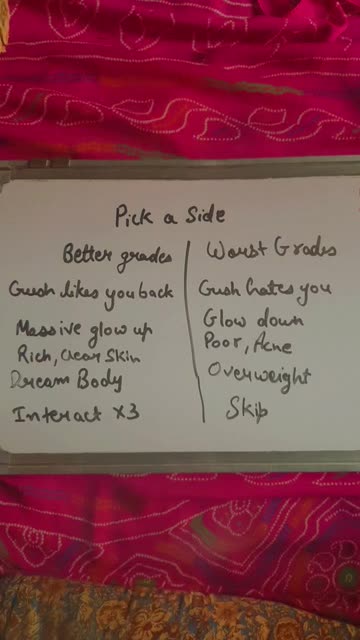 Pick a Side
Better grades
Gush likes you back
Massive glow up
Rich, Clear Skin
Dream Body
Interact x3
Worst Grades
Gush hates you
Glow down
Poor, Acne
Overweight
Skip